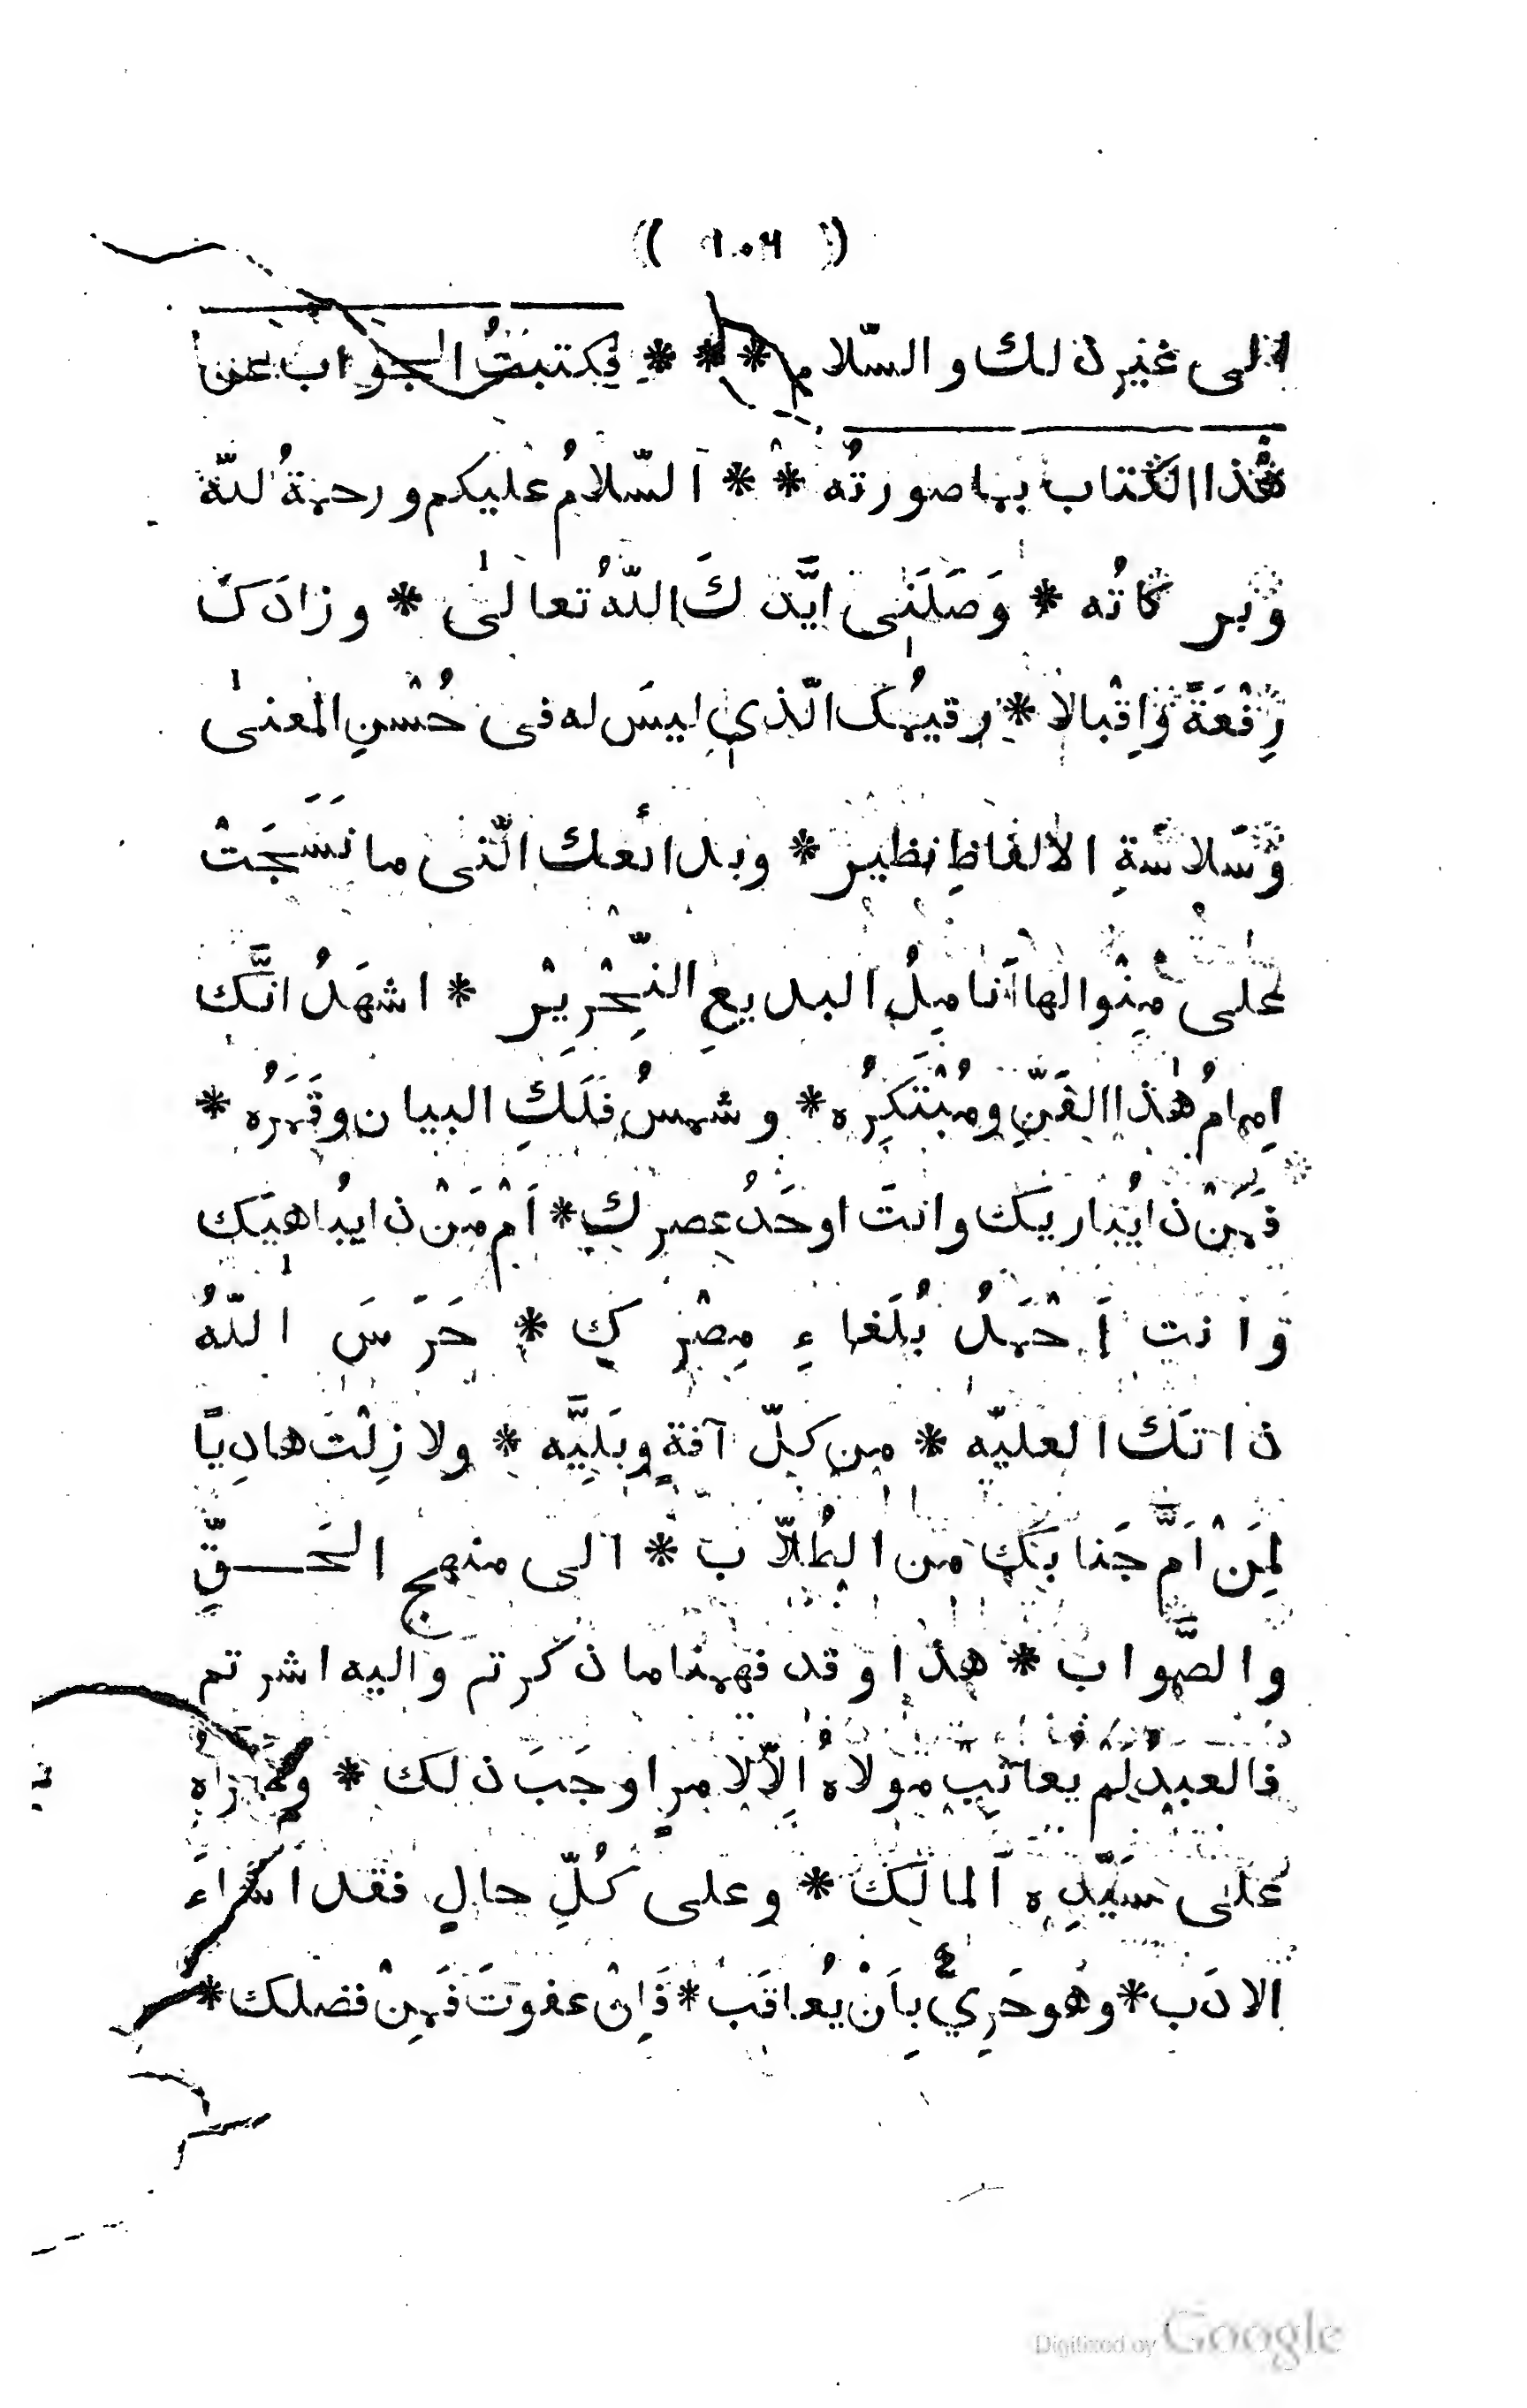 ( ١٠٤ )
الى غير ذلك والسّلام * * * فكتبتُ الجواب عن
هٰذا الكتاب بما صورتُه * * السّلامُ عليكم ورحمةُ للّه
وبركاتُه * وَصَلَنى ايَّدكَ اللّهُ تعالىٰ * وزادَكَ
رِفْعَةً وَاِقْبالا * رقيمُك الّذي ليسَ له فى حُسْنِ المعنىٰ
وَسَلاسَةِ الالفاظِ نظير * وبدائعك الّتى ما نَسَجَتْ
على مِنْوالها اَنامِلُ البديعِ النِّحْرِيْر * اشهَدُ انَّك
اِمامُ هٰذا الفَنِّ ومُبْتَكِرُه * وشمسُ فَلَكِ البيان وقَمَرُه *
فَمَنْ ذا يُباريك وانتَ اوحَدُ عصرك * اَمْ مَنْ ذا يُباهيَك
وَانت اَحْمَدُ بُلَغاءِ مِصْرِك * حَرَسَ اللّهُ
ذاتَك العليّه * من كلّ آفةٍ وبَلِيَّه * ولا زِلْتَ هادِياً
لِمَنْ اَمَّ جَنابَك من الطُلّاب * الى منهج الحَـــقِّ
والصَّواب * هذا وقد فهمنا ما ذكرتم واليه اشرتم
فالعبدُ لم يُعاتِب مولاهُ اِلّا لامرٍ اوجَبَ ذلك *
علٰى سَيِّدِه المالك * وعلى كُلِّ حالٍ فقد اَساءَ
الادَب * وهُو حَرِيٌّ بِاَنْ يُعاقَب * فَاِنْ عفوتَ فَمِنْ فضلك *
Digitized by Google